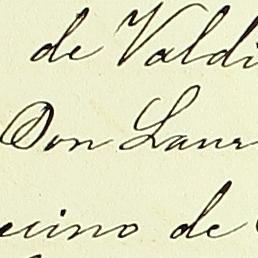 de Valdi
Don Laur
ecino de